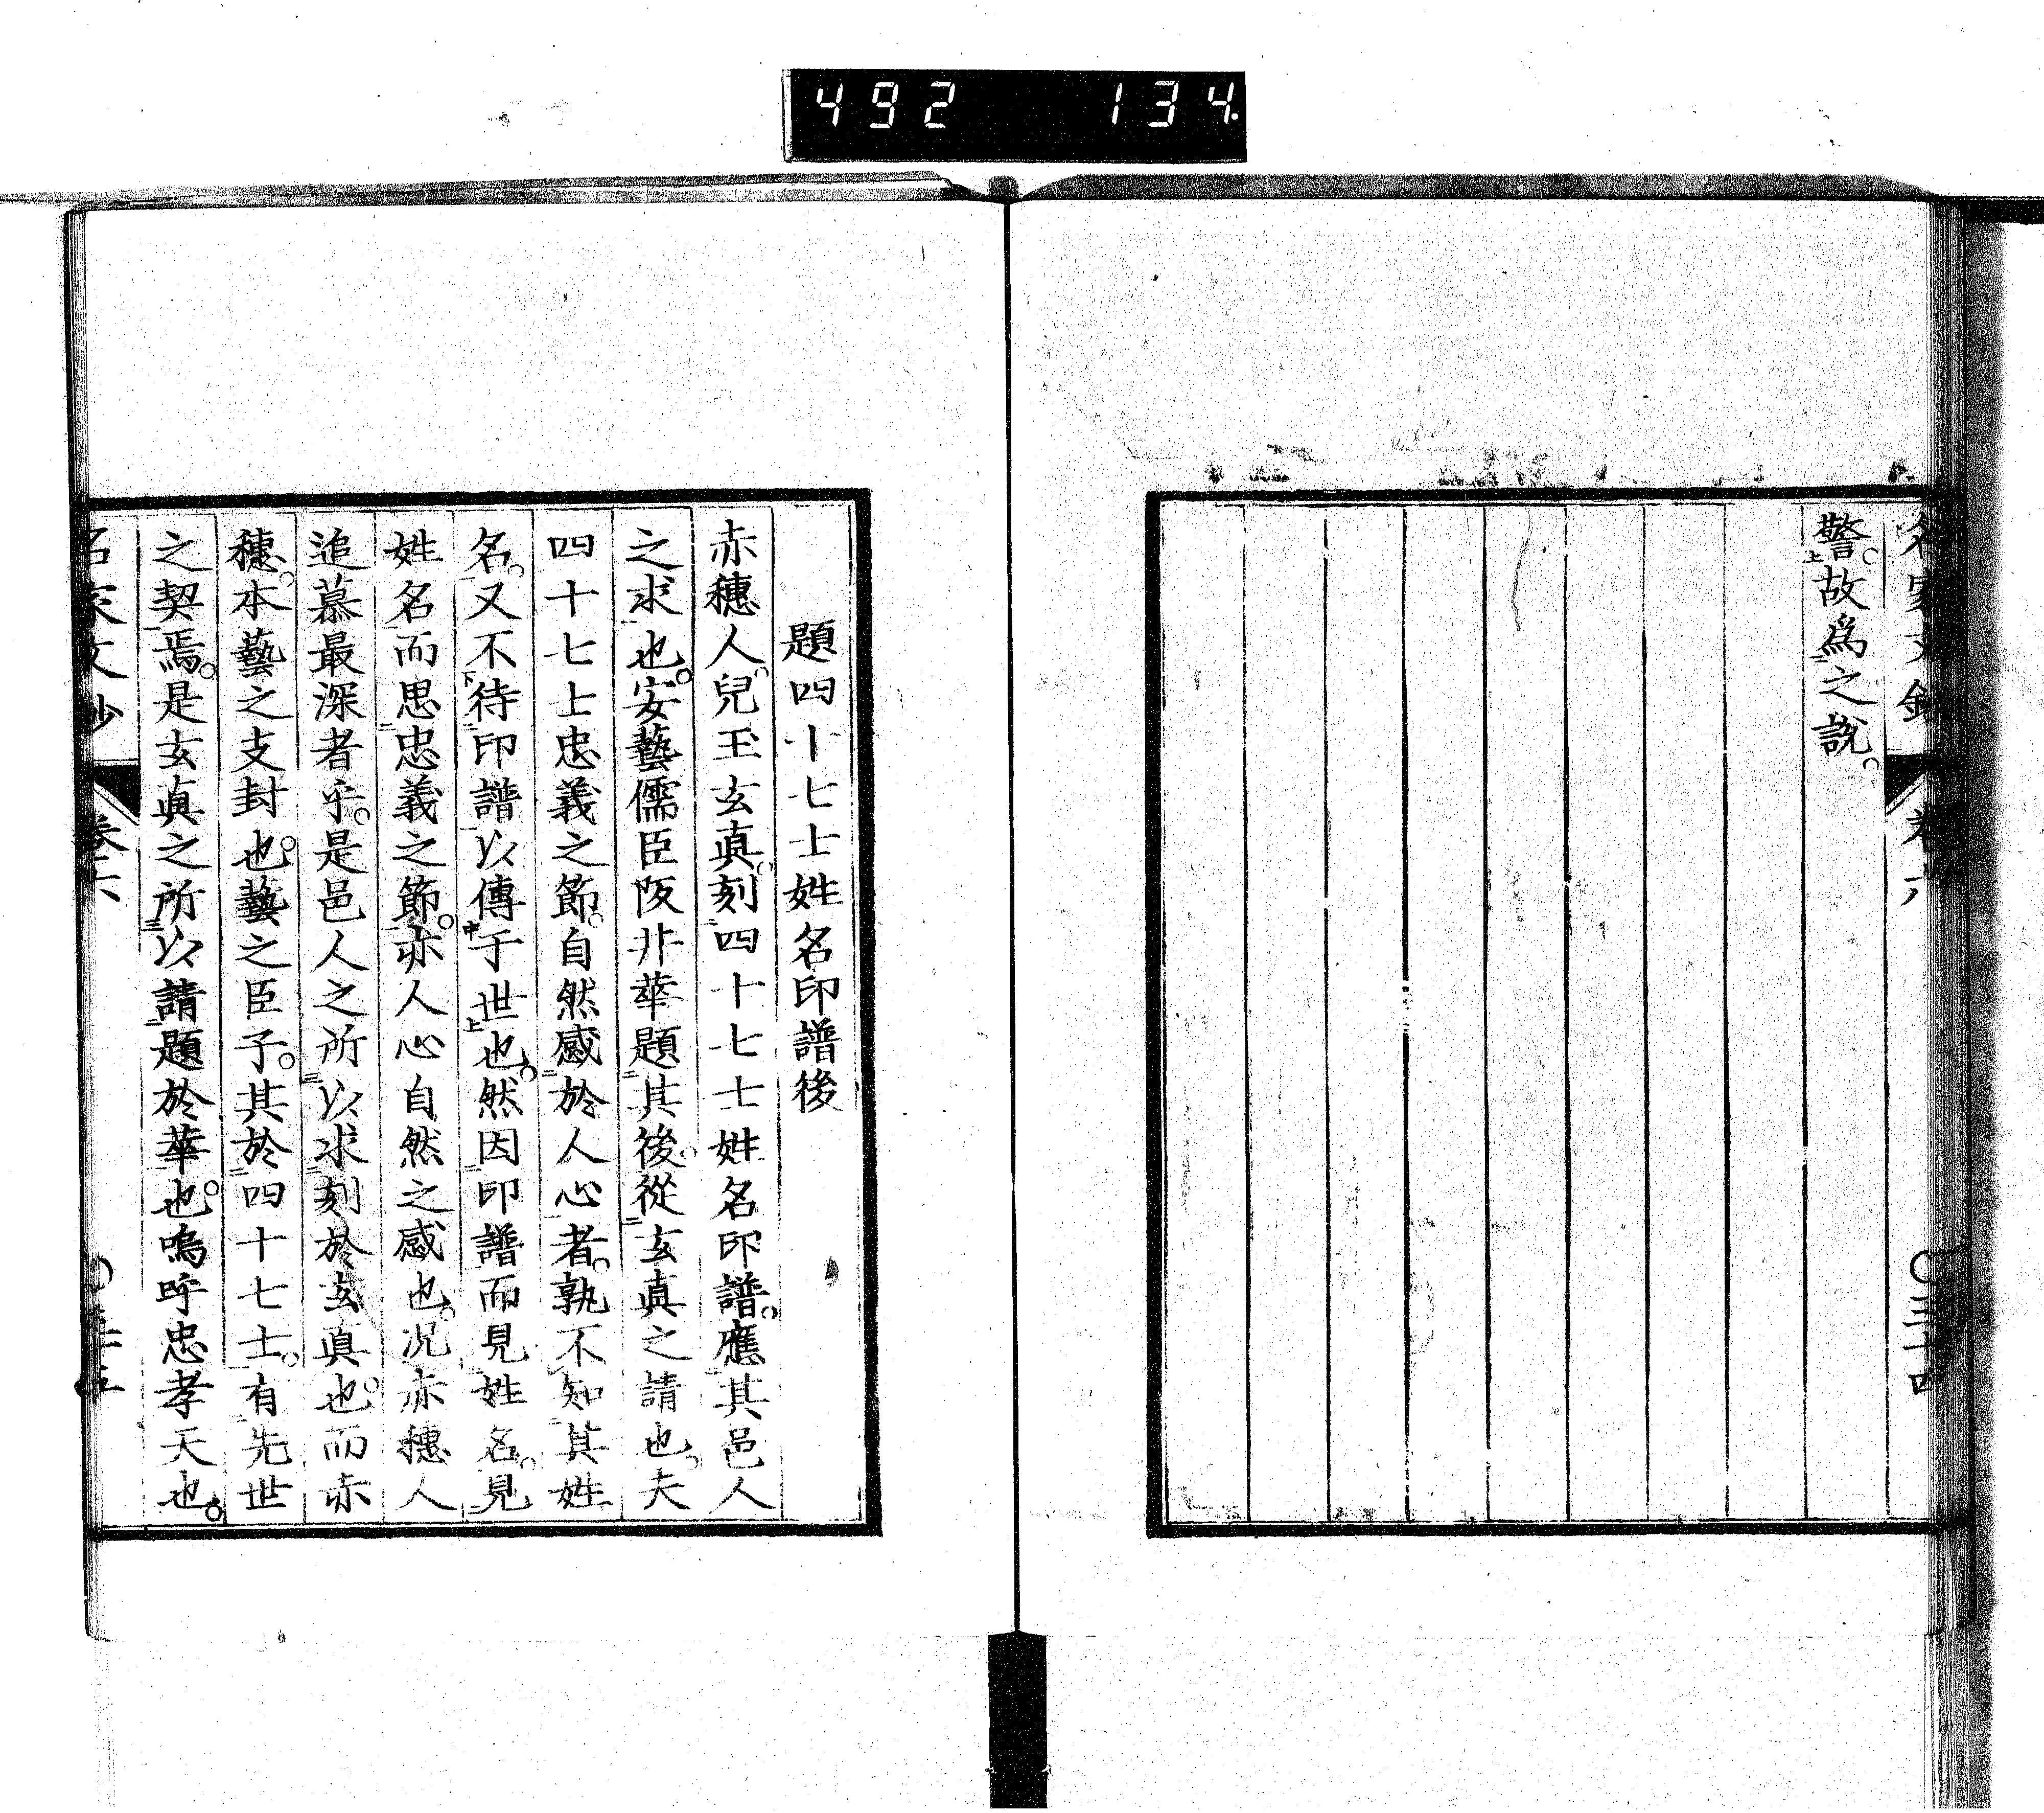 492 134
名家文鈔 卷六 ○三十四
警。故爲之說。
題四十七士姓名印譜後
赤穗人。兒玉玄眞。刻四十七士姓名印譜。應其邑人
之求也。安藝儒臣阪井華題其後。從玄眞之請也。夫
四十七士忠義之節。自然感於人心者。孰不知其姓
名。又不待印譜以傳于世也。然因印譜而見姓名。見
姓名而思忠義之節。亦人心自然之感也。况赤穗人
追慕最深者乎。是邑人之所以求刻於玄眞也。而赤
穗。本藝之支封也。藝之臣子。其於四十七士。有先世
之契焉。是玄眞之所以請題於華也。嗚呼忠孝天也。
名家文鈔 卷六 ○三十五